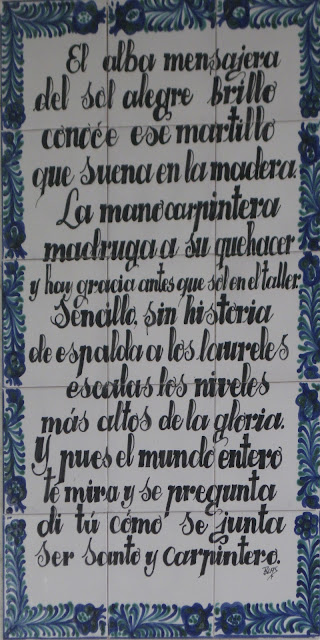 El alba mensajera
del sol alegre brillo
conoce ese martillo
que suena en la madera.
La mano carpintera
madruga a su quehacer
y hay gracia antes que sol en el taller.
Sencillo, sin historia
de espalda a los laureles
escalas los niveles
más altos de la gloria.
Y pues el mundo entero
te mira y se pregunta
di tú cómo se junta
ser santo y carpintero.